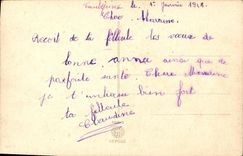 le 1 janvier 1918.
Chere Marraine
Recoit de ta filleule les vœux de
bonne anna ainsi que de
parfaite santé. Chere Marraine
je t'embrasse bien fort
ta filleule
Claudine